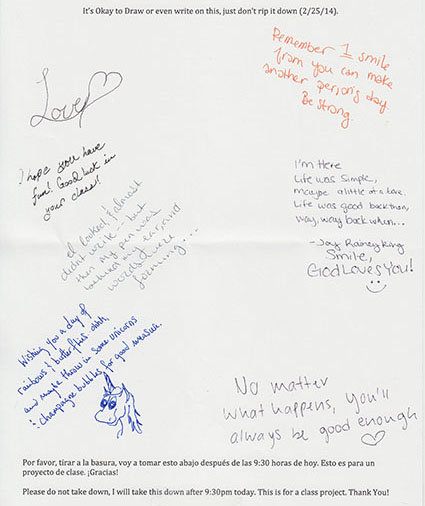 It's Okay to Draw or even write on this, just don't rip it down (2/25/14).
Remember 1 smile
from you can make
another person's day
Be strong.
Love
I hope you have
fun! Good luck in
your class!
I'm Here
Life was simple,
maybe a little of a bore.
Life was good back then,
way, way back when...
- Jay Raineyking
Smile,
God Loves You!
I looked & almost
didn't write... but
then my pen was
behind my ear, and
words were
forming...
Wishing you a day of
rainbows & butterflies ahhh,
and maybe throw in some unicorns
& champagne bubbles for good measure.
No matter
what happens, you'll
always be good enough
Por favor, tirar a la basura, voy a tomar esto abajo después de las 9:30 horas de hoy. Esto es para un
proyecto de clase. ¡Gracias!
Please do not take down, I will take this down after 9:30pm today. This is for a class project. Thank You!